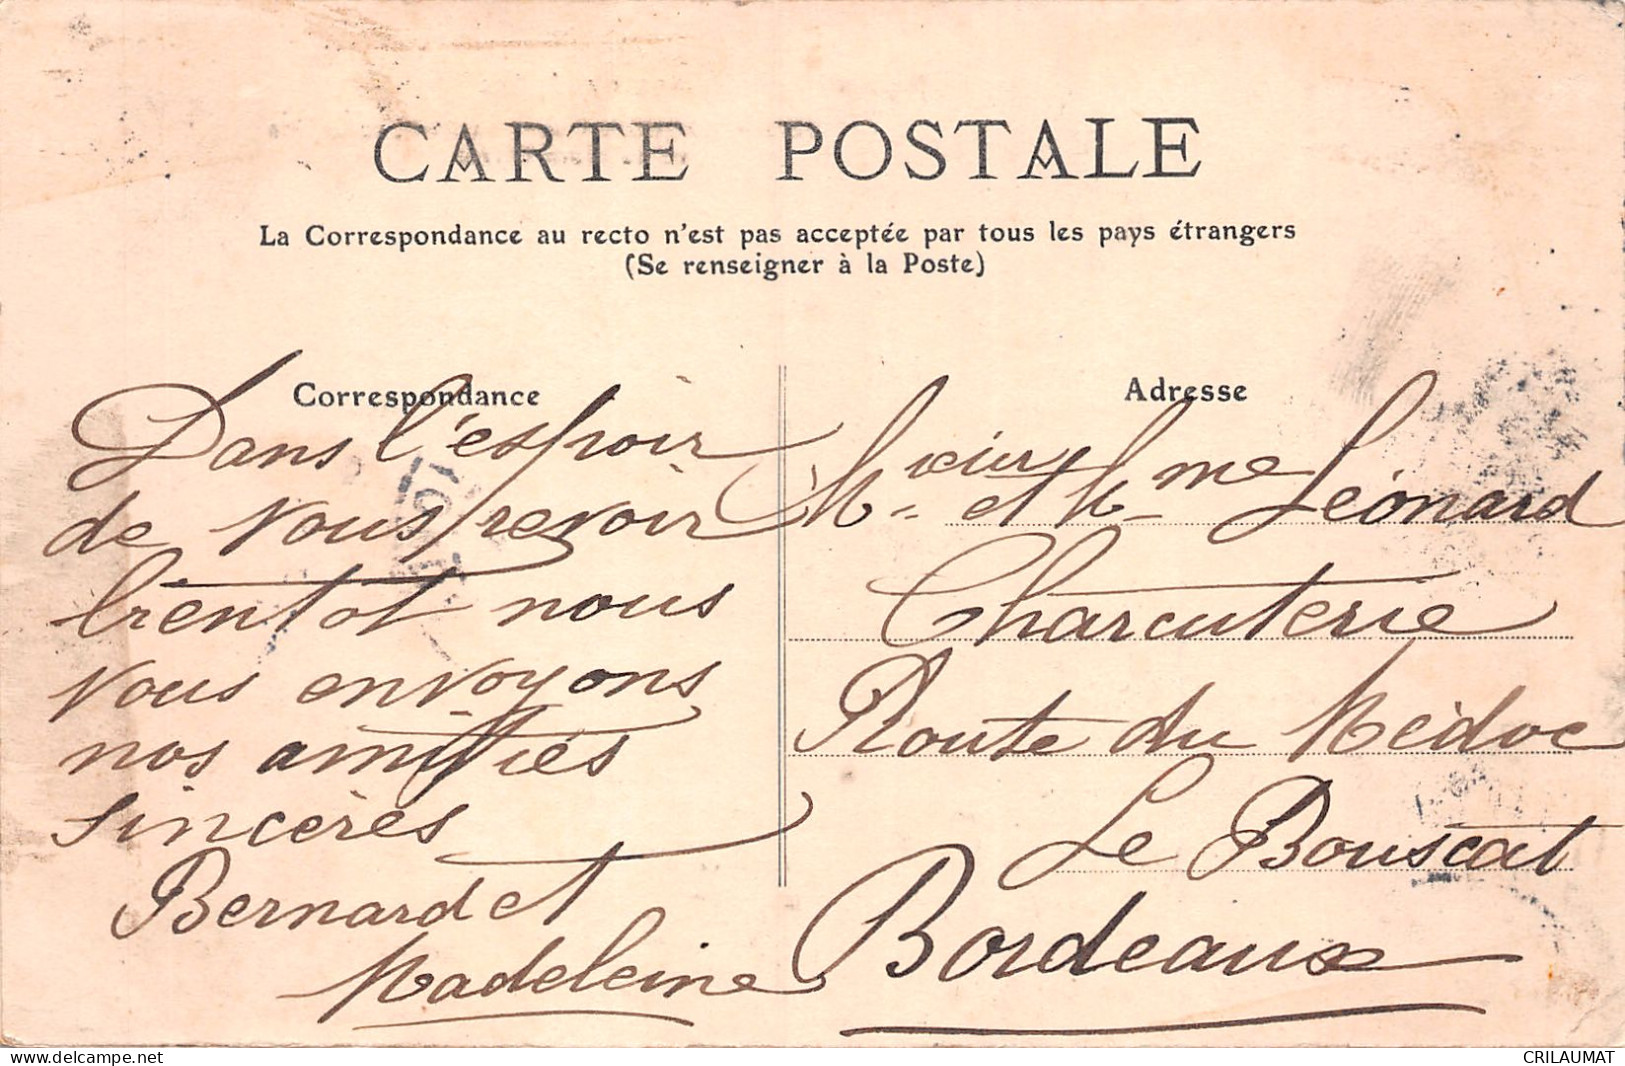 CARTE POSTALE
La Correspondance au recto n'est pas acceptée par tous les pays étrangers
(Se renseigner à la Poste)
Correspondance
Dans l'espoir
de vous revoir
bientot nous
vous envoyons
nos amitiés
sincères
Bernard et
Madeleine
Adresse
Mr et Mme Léonard
Charcuterie
Route du Médoc
Le Bouscat
Bordeaux
https://www.delcampe.net
CRILAUMAT